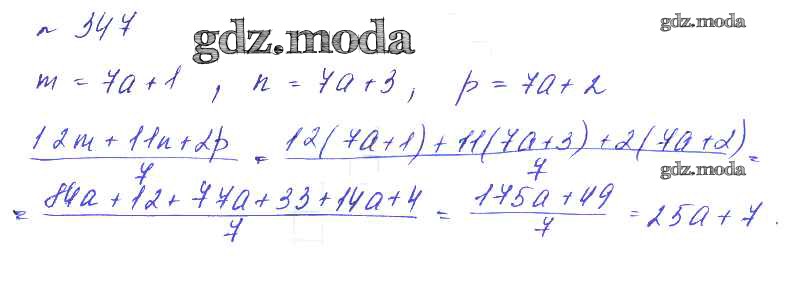 № 347
gdz.moda
gdz.moda
m = 7a + 1, n = 7a + 3, p = 7a + 2
(12m + 11n + 2p)/7 = (12(7a+1) + 11(7a+3) + 2(7a+2))/7 =
gdz.moda
= (84a + 12 + 77a + 33 + 14a + 4)/7 = (175a + 49)/7 = 25a + 7.